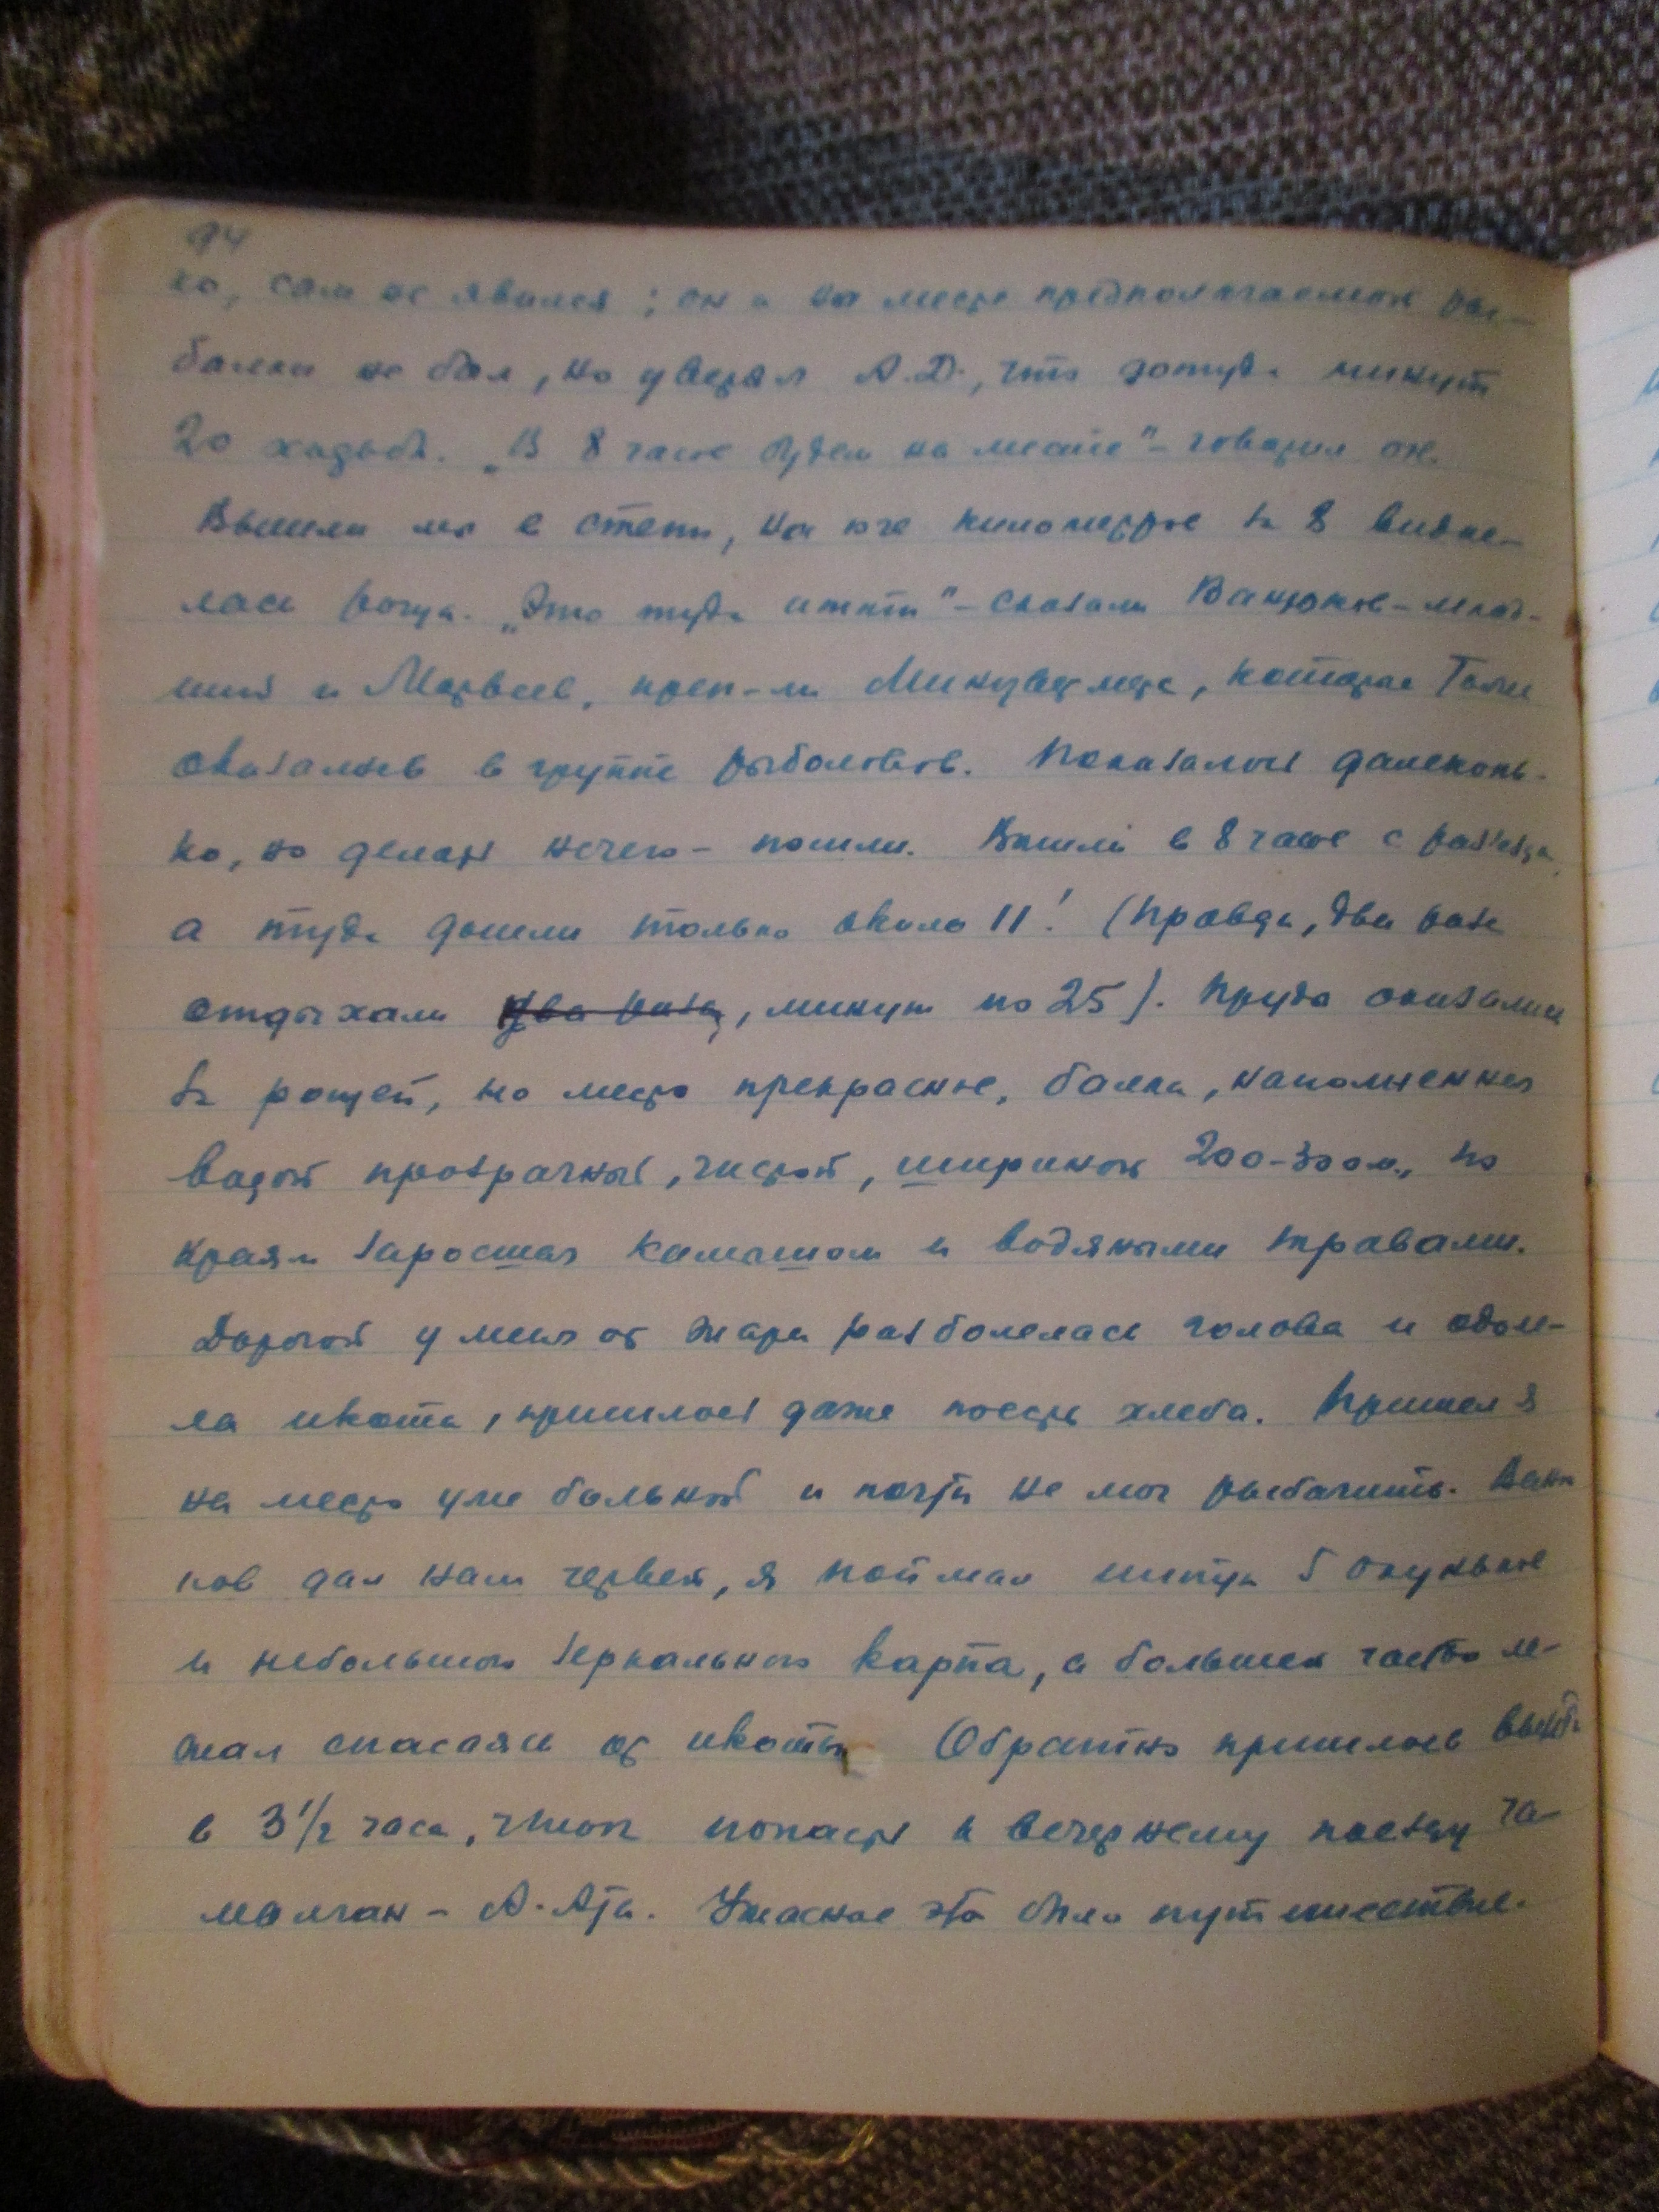 94
ко, сам не явился; он и на месте предполагаемой ры-
балки не был, но уверял А.Д., что дотуда минут
20 ходьбы. „В 8 часов будем на месте" – говорил он.
Вышли мы в степь, на юге километров за 8 видне-
лась роща. „Это туда итти" – сказали Ванюков-млад-
ший и Матвеев, преп-ли, которые тоже
оказались в группе рыболовов. Показалось далеконь-
ко, но делать нечего – пошли. Вышли в 8 часов с разъезда,
а туда дошли только около 11! (Правда, два раза
отдыхали два раза, минут по 25). Пруды оказались
за рощей, но место прекрасное, балка, наполненная
водой прозрачной, чистой, шириной 200-300 м., по
краям заросшая камышом и водяными травами.
Дорогой у меня от жары разболелась голова и одоле-
ла икота, пришлось даже поесть хлеба. Пришел я
на место уже больной и почти не мог рыбачить. Ваню
ков дал нам червей, я поймал штук 5 окуньков
и небольшого зеркального карпа, а большей частью ле-
жал спасаясь от икоты. Обратно пришлось выйти
в 3 1/2 часа, чтоб попасть к вечернему поезду Та-
малган – А.-Ата. Ужасное это было путешествие.